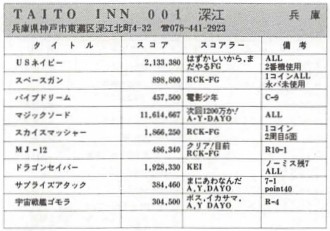 TAITO INN 001 深江 兵庫
兵庫県神戸市東灘区深江北町4-32 ☎078-441-2923
タイトル スコア スコアラー 備考
USネイビー 2,133,380 はずかしいから、まだやるFG ALL 2番機使用
スペースガン 898,800 RCK-FG 1コインALL 永パ未使用
パイプドリーム 457,500 電影少年 C-9
マジックソード 11,614,667 次回1200万か! A・Y-DAYO ALL
スカイスマッシャー 1,866,250 RCK-FG 1コイン 2周目5面
MJ-12 486,340 クリア目前 RCK-FG R10-1
ドラゴンセイバー 1,928,330 KEI ノーミス残7 ALL
サプライズアタック 384,460 まにあわなんだ A,Y,DAYO 7-1 point40
宇宙戦艦ゴモラ 304,500 ボス,イカサマ, A,Y,DAYO R-4